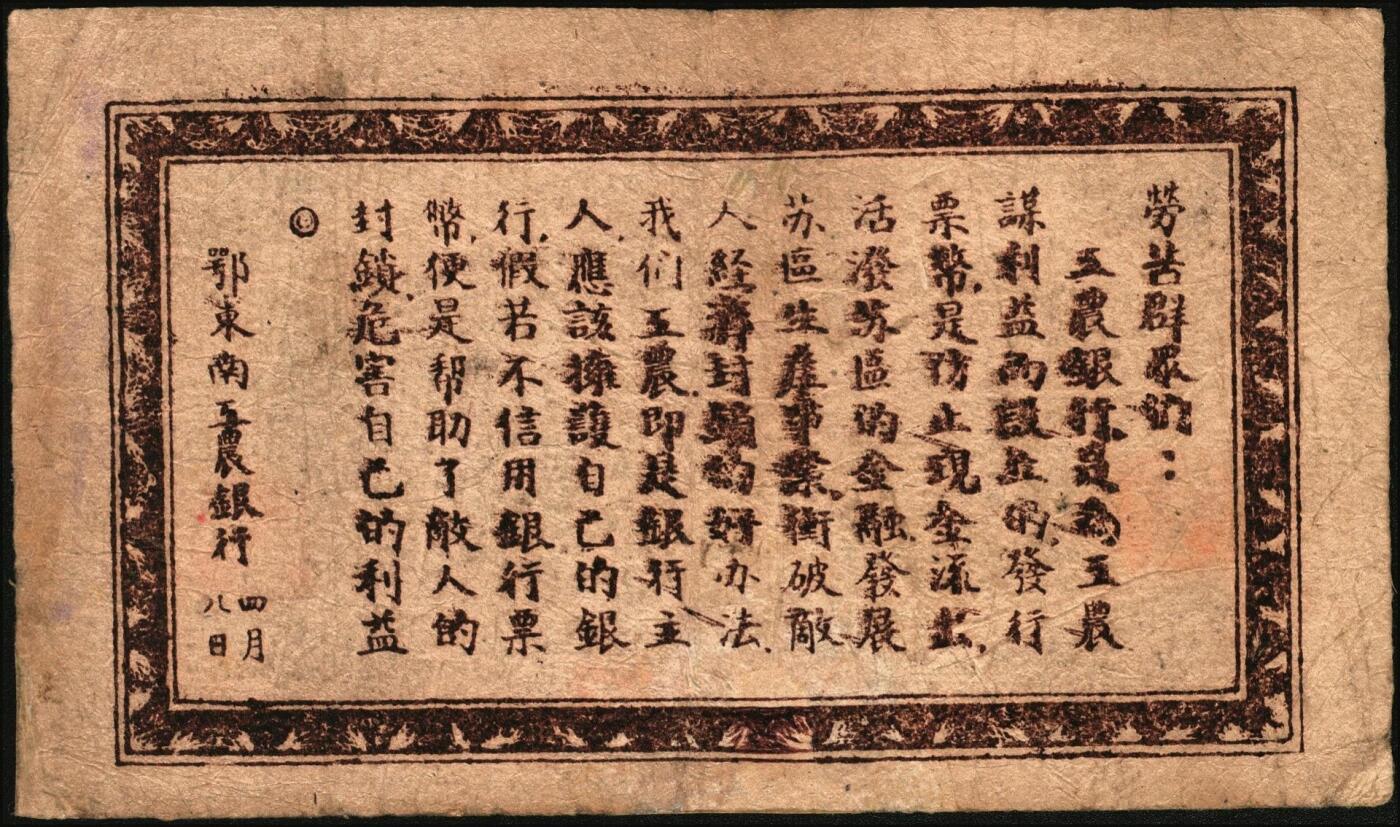 勞苦群眾们：
工農銀行,是為工農
謀利益而設立的,發行
票幣,是防止現金流出,
活潑苏區的金融,發展
苏區生産事業,衝破敵
人経濟封鎖的好办法.
我们工農,即是銀行主
人,應該擁護自己的銀
行,假若不信用銀行票
幣,便是帮助了敵人的
封鎖,危害自己的利益
◎
鄂東南工農銀行 四月
八日